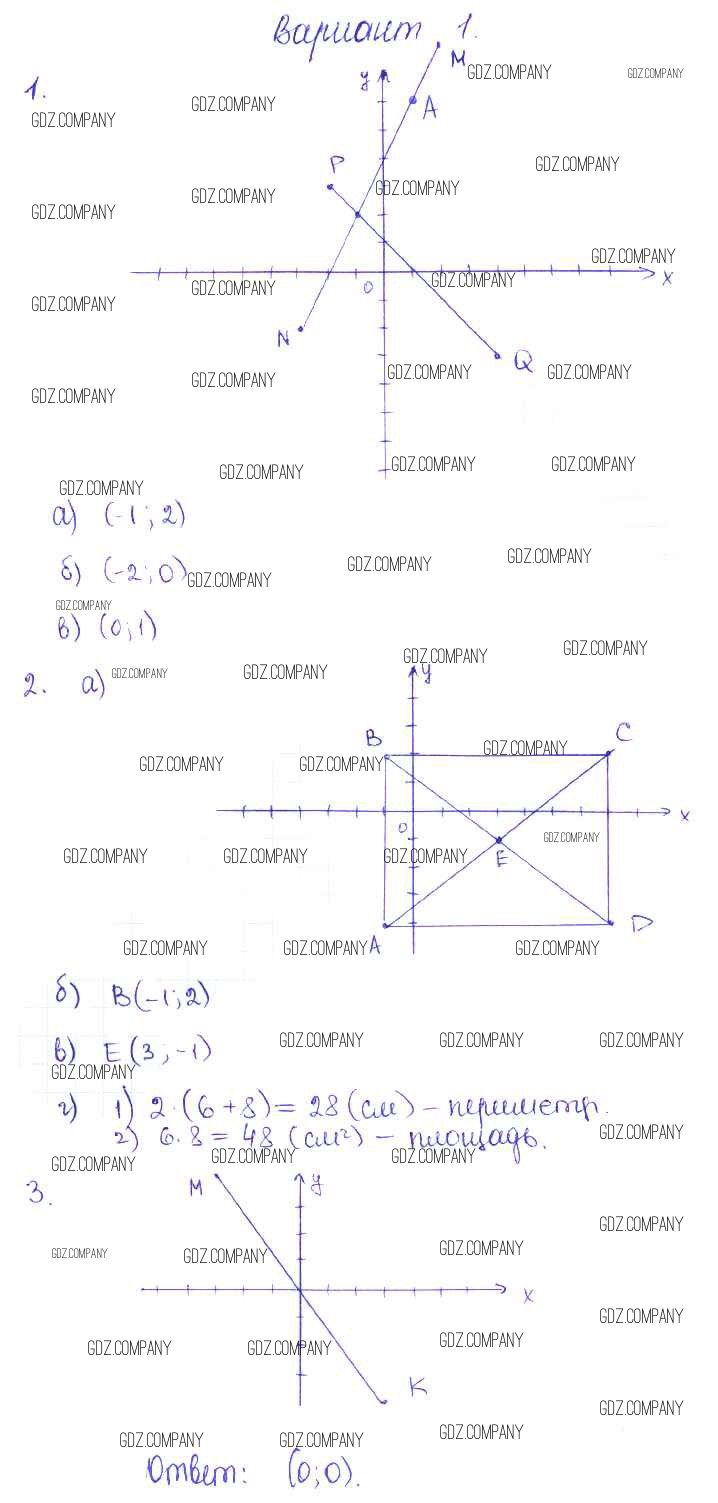 Вариант 1.
1.
y
M
A
P
0
x
N
Q
а) (-1; 2)
б) (-2; 0)
в) (0; 1)
2. а)
y
B
C
0
x
E
A
D
б) B(-1; 2)
в) E(3; -1)
г) 1) 2·(6+8)=28(см) – периметр.
2) 6·8=48 (см²) – площадь.
3.
M
y
x
K
Ответ: (0; 0).
GDZ.COMPANY